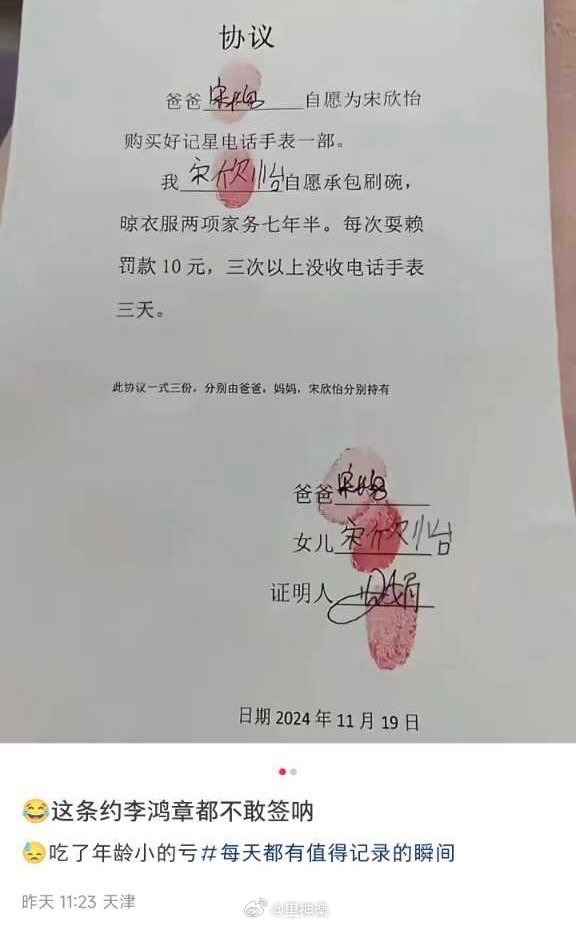 协议
爸爸 自愿为宋欣怡
购买好记星电话手表一部。
我宋欣怡自愿承包刷碗，
晾衣服两项家务七年半。每次耍赖
罚款10元，三次以上没收电话手表
三天。
此协议一式三份，分别由爸爸，妈妈，宋欣怡分别持有
爸爸
女儿宋欣怡
证明人
日期 2024 年 11 月 19 日
😂这条约李鸿章都不敢签呐
😓吃了年龄小的亏#每天都有值得记录的瞬间
昨天 11:23 天津
@里神楽